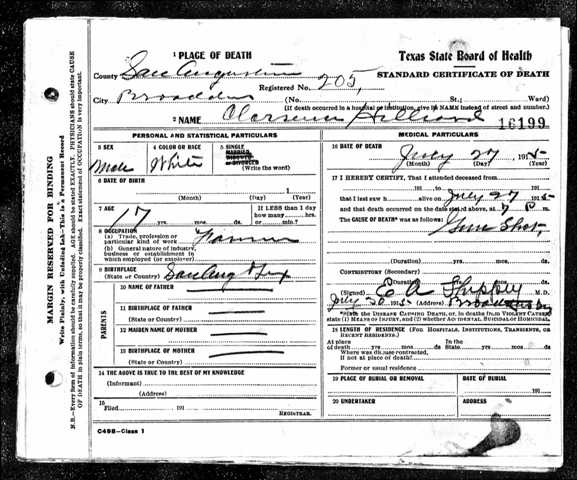 MARGIN RESERVED FOR BINDING
Write Plainly, with Unfading Ink—This is a Permanent Record
N. B.—Every item of information should be carefully supplied. AGE should be stated EXACTLY. PHYSICIANS should state CAUSE
OF DEATH in plain terms, so that it may be properly classified. Exact statement of OCCUPATION is very important.
1 PLACE OF DEATH
Texas State Board of Health
County San Augustine
Registered No. 205,
STANDARD CERTIFICATE OF DEATH
City Broaddus (No. St.; Ward)
(If death occurred in a hospital or institution, give its NAME instead of street and number.)
2 NAME Clarence Hilliard
16199
PERSONAL AND STATISTICAL PARTICULARS
3 SEX
Male
4 COLOR OR RACE
White
5 SINGLE
MARRIED
WIDOWED
or DIVORCED
(Write the word)
6 DATE OF BIRTH
1
(Month) (Day) (Year)
7 AGE
17 yrs. mos. ds.
If LESS than 1 day
how many hrs.
or min.
8 OCCUPATION
(a) Trade, profession or
particular kind of work Farmer
(b) General nature of industry,
business or establishment in
which employed (or employer)
9 BIRTHPLACE
(State or Country) San Aug Tex
PARENTS
10 NAME OF FATHER
11 BIRTHPLACE OF FATHER
(State or Country)
12 MAIDEN NAME OF MOTHER
13 BIRTHPLACE OF MOTHER
(State or Country)
14 THE ABOVE IS TRUE TO THE BEST OF MY KNOWLEDGE
(Informant)
(Address)
15
Filed 191
REGISTRAR.
C49B—Class 1
MEDICAL PARTICULARS
16 DATE OF DEATH
July 27 1915
(Month) (Day) (Year)
17 I HEREBY CERTIFY, That I attended deceased from
191 to 191
that I last saw h alive on July 27 1915
and that death occurred on the date stated above, at 7 P m.
The CAUSE OF DEATH was as follows:
Gun Shot,
(Duration) yrs. mos. ds.
CONTRIBUTORY
(Secondary)
(Duration) yrs. mos. ds.
(Signed) E A M. D.
July 1915 (Address) Broaddus
*State the DISEASE CAUSING DEATH, or, in deaths from VIOLENT CAUSES,
state (1) MEANS OF INJURY, and (2) whether ACCIDENTAL, SUICIDAL OR HOMICIDAL.
18 LENGTH OF RESIDENCE (FOR HOSPITALS, INSTITUTIONS, TRANSIENTS, OR
RECENT RESIDENTS.)
At place
of death yrs. mos. ds.
In the
State yrs. mos. ds.
Where was disease contracted,
if not at place of death?
Former or usual residence
19 PLACE OF BURIAL OR REMOVAL
DATE OF BURIAL
191
20 UNDERTAKER
ADDRESS